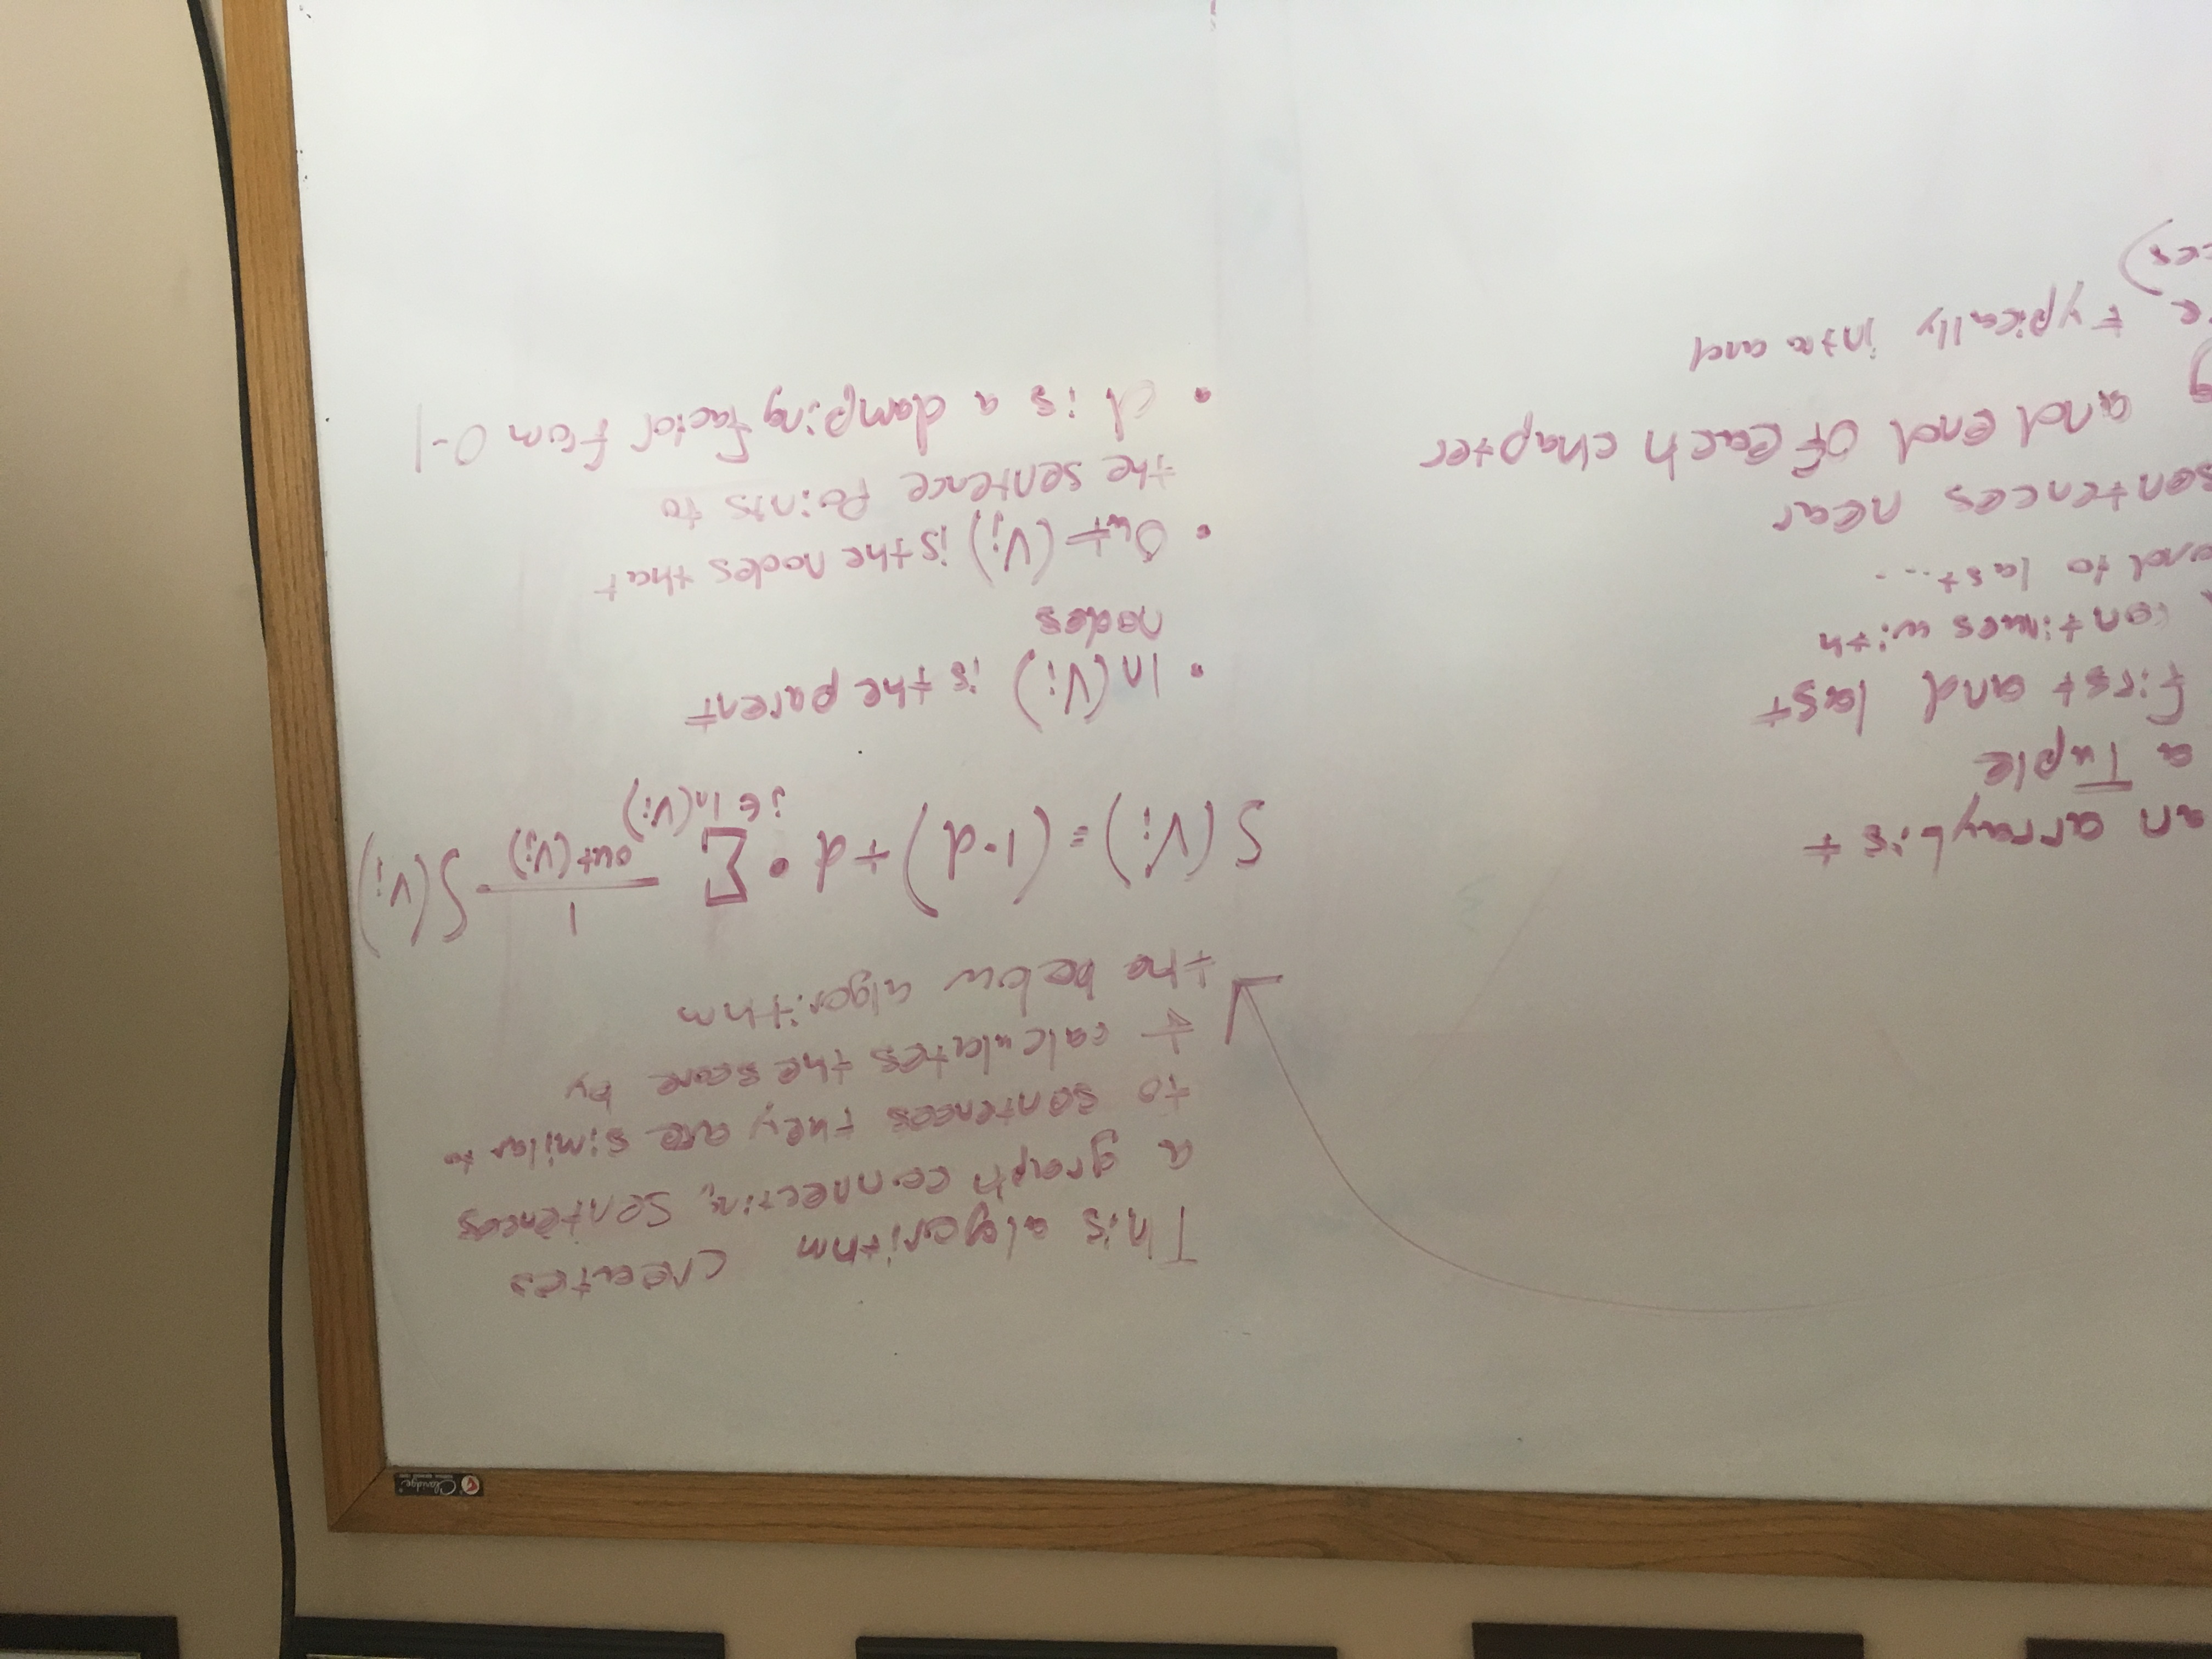 Claridge
an arrayList
a Tuple
first and last
continues with
to last....
sentences near
and end of each chapter
typically intra and
This algorithm creates
a graph connecting sentences
to sentences they are similar to
+ calculates the score by
the below algorithm
S(Vi) = (1-d) + d • ∑ j∈In(Vi) 1/out(Vj) S(Vj)
• In(Vi) is the parent
nodes
• Out(Vj) is the nodes that
the sentence points to
• d is a damping factor from 0-1